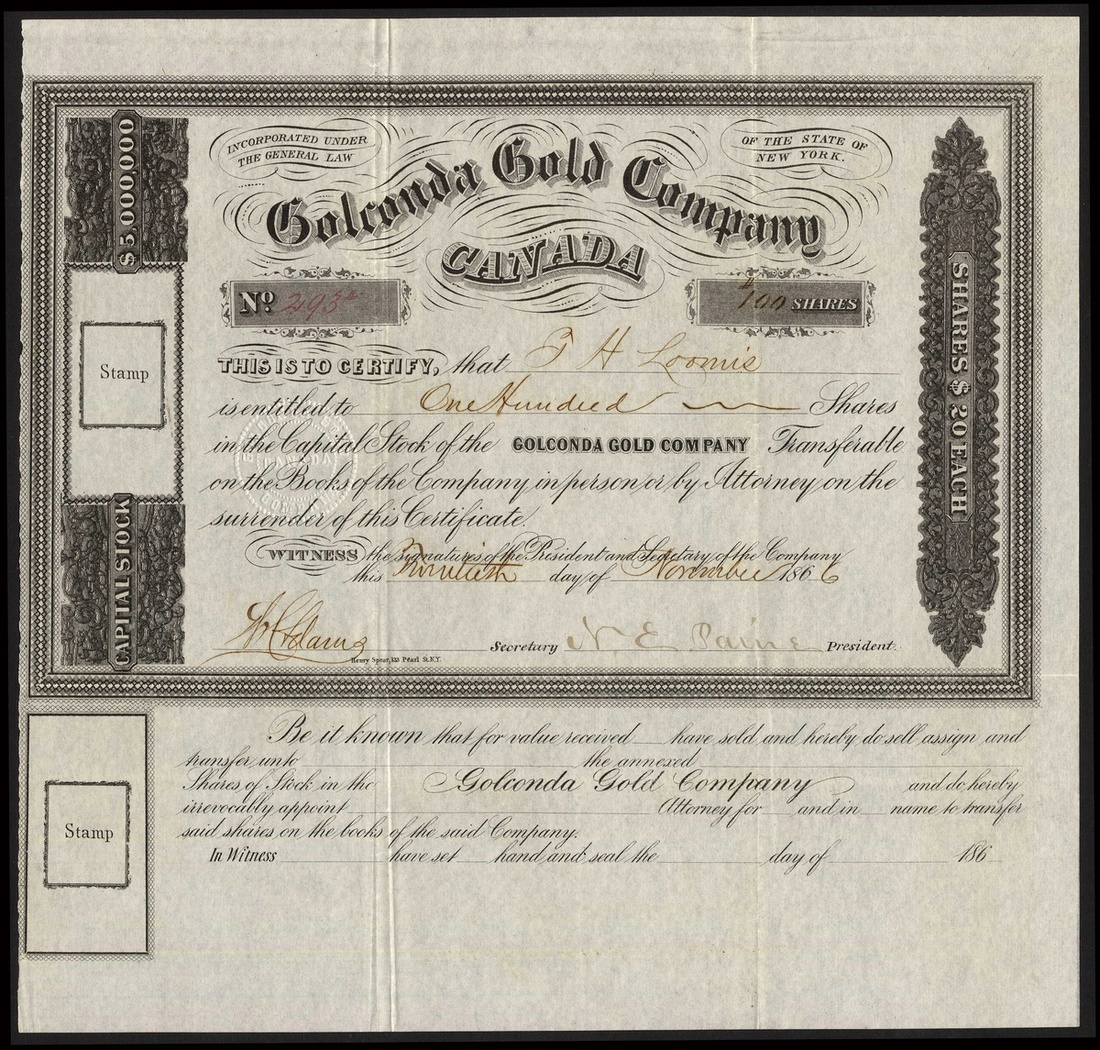 INCORPORATED UNDER
THE GENERAL LAW
OF THE STATE OF
NEW YORK.
Golconda Gold Company
CANADA
$5,000,000
CAPITAL STOCK
Stamp
SHARES $20 EACH
No. 293
100 SHARES
THIS IS TO CERTIFY, that T H Loomis
is entitled to One Hundred Shares
in the Capital Stock of the GOLCONDA GOLD COMPANY Transferable
on the Books of the Company in person or by Attorney on the
surrender of this Certificate.
WITNESS the signatures of the President and Secretary of the Company
this day of November 1866
Secretary N E Paine President.
Henry Spear, 133 Pearl St. N.Y.
Stamp
Be it known that for value received have sold and hereby do sell, assign and
transfer unto the annexed
Shares of Stock in the Golconda Gold Company and do hereby
irrevocably appoint Attorney for and in name to transfer
said shares on the books of the said Company.
In Witness have set hand and seal the day of 186